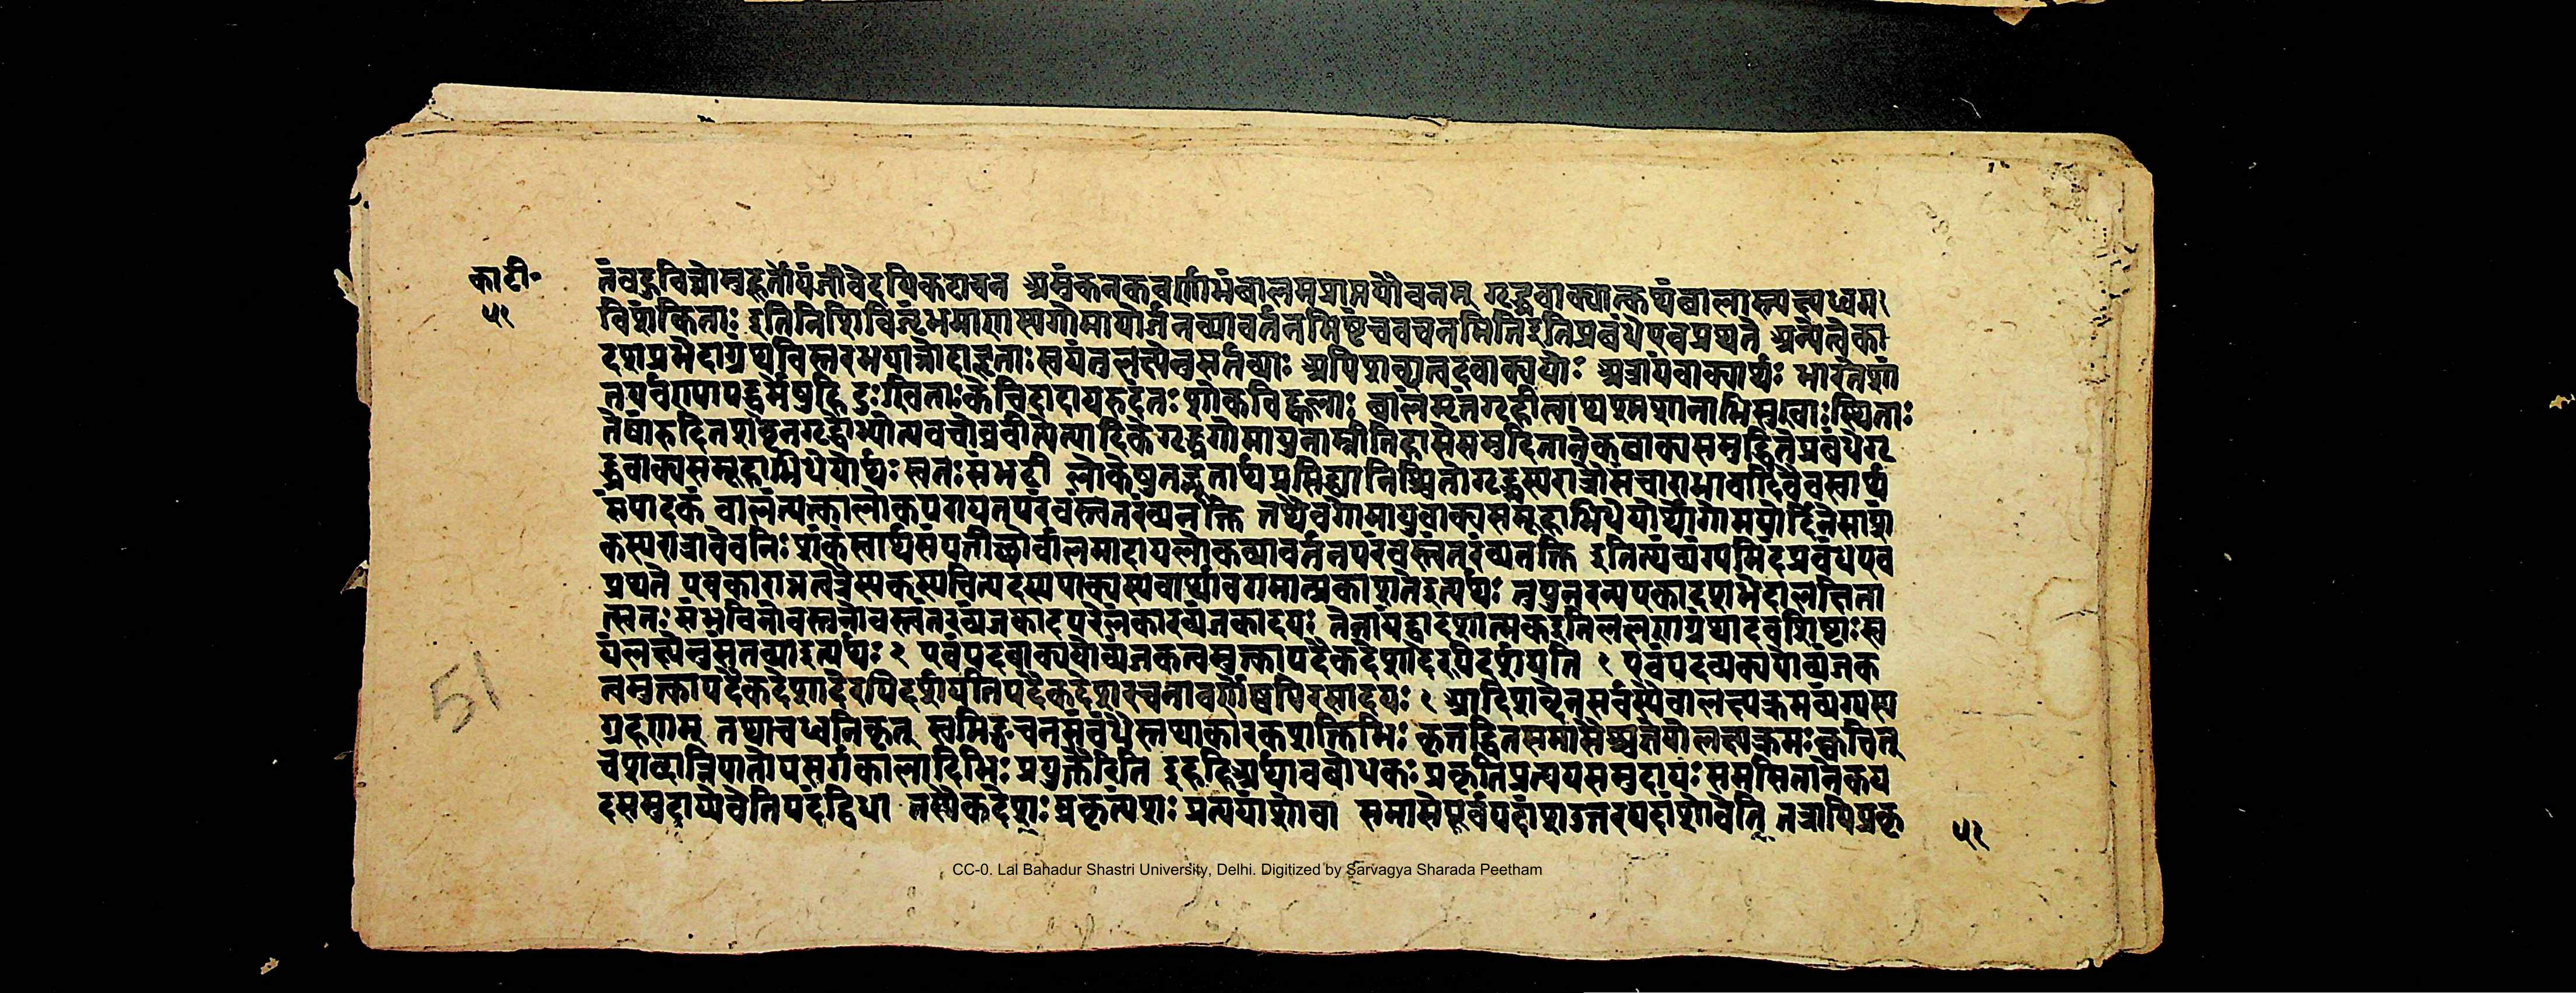 का टी॰
५१
तं वदुविघ्नोमुहूर्तोयंजीवेदपिकदाचन अमुंकनकवर्णाभंबालमप्राप्तयौवनम् गृद्ध्रवाक्यात्कथंबालास्त्यक्ष्यध्वम
विशंकिताः इतिनिशिविजृंभमाणस्यगोमायोर्जनव्यावर्तनमिष्टंचवचनमितिइतिप्रबंधेएवप्रथते अन्येत्वेका
दशप्रभेदाग्रंथविस्तरभयान्नोदाहृताः स्वयंतुलक्ष्येनुसर्तव्याः अपिशब्दात्पदवाक्ययोः अत्रायंवाक्यार्थः भारतेशां
तिपर्वण्यापद्धर्मेषुहि दुःखिताःकेचिदादायरुदंतः शोकविह्वलाः बालंमृतंगृहीत्वाथश्मशानाभिमुखाः स्थिताः
तेषांरुदितशब्देनगृद्ध्रोभ्येत्यवचोब्रवीदित्यादिके गृद्ध्रगोमायुनाम्नीतिहासेसमुदितानेकवाक्यसमुद्धितेप्रबंधेगृ
द्ध्रवाक्यसमूहाभिधेयोर्थः स्वतःसंभवी लोकेषुतद्भूतार्थप्रसिद्ध्यानिश्चितोगृद्ध्रस्यरात्रौसंचाराभावाद्दिवैवस्वार्थ
संपादकं बालंत्यक्त्वालोकपरायनपरंवस्त्वंतरंव्यनक्ति तथैवगोमायुवाक्यसमूहाभिधेयोर्थोगोमायोर्दिनेसाशं
कस्यरात्रावेवनिःशंकंस्वार्थसंपत्तीच्छोर्बालमादायलोकव्यावर्तनपरंवस्त्वंतरंव्यनक्ति इतित्यंव्यंग्यमिदंप्रबंधएव
प्रथते एवकारान्नत्वत्रैकस्यकस्यचित्पदस्यवाक्यस्यवार्थावगमात्प्रकाशतइत्यर्थः नुपुनरन्यएकादशभेदालक्षिता
त्स्वतः संभविनोवस्तुनोवस्त्वंतरव्यंजकादपरेलंकारव्यंजकादयः तेत्रायंद्वादशात्मकइतिलक्षणग्रंथादवशिष्टाःस्व
यंलक्ष्येनुसर्तव्याइत्यर्थः २ एवंपदवाक्ययोर्व्यंजकत्वमुक्त्वापदैकदेशादेरपिदर्शयति १ एवंपदवाक्ययोर्व्यंजक
त्वमुक्त्वापदैकदेशादेरपिदर्शयतिपदैकदेशरचनावर्णेष्वपिरसादयः १ आदिशब्देनसर्वस्यैवालक्ष्यक्रमव्यंग्यस्य
ग्रहणम् तथाचध्वनिकृत् स्वप्तिङ्वचनसंबंधैस्तथाकारकशक्तिभिः कृत्तद्धितसमासैश्चद्योत्योलक्ष्यक्रमःक्वचित्
चशब्दान्निपातोपसर्गकालादिभिः प्रयुक्तैरिति इहहिअर्थावबोधकः प्रकृतिप्रत्ययसमुदायः समसितानेकप
दसमुदायोवेतिपदंद्विधा तस्यैकदेशः प्रकृत्यंशः प्रत्ययांशोवा समासेपूर्वपदांशउत्तरपदांशोवेति तत्रापिप्रकृ
५१
51
CC-0. Lal Bahadur Shastri University, Delhi. Digitized by Sarvagya Sharada Peetham